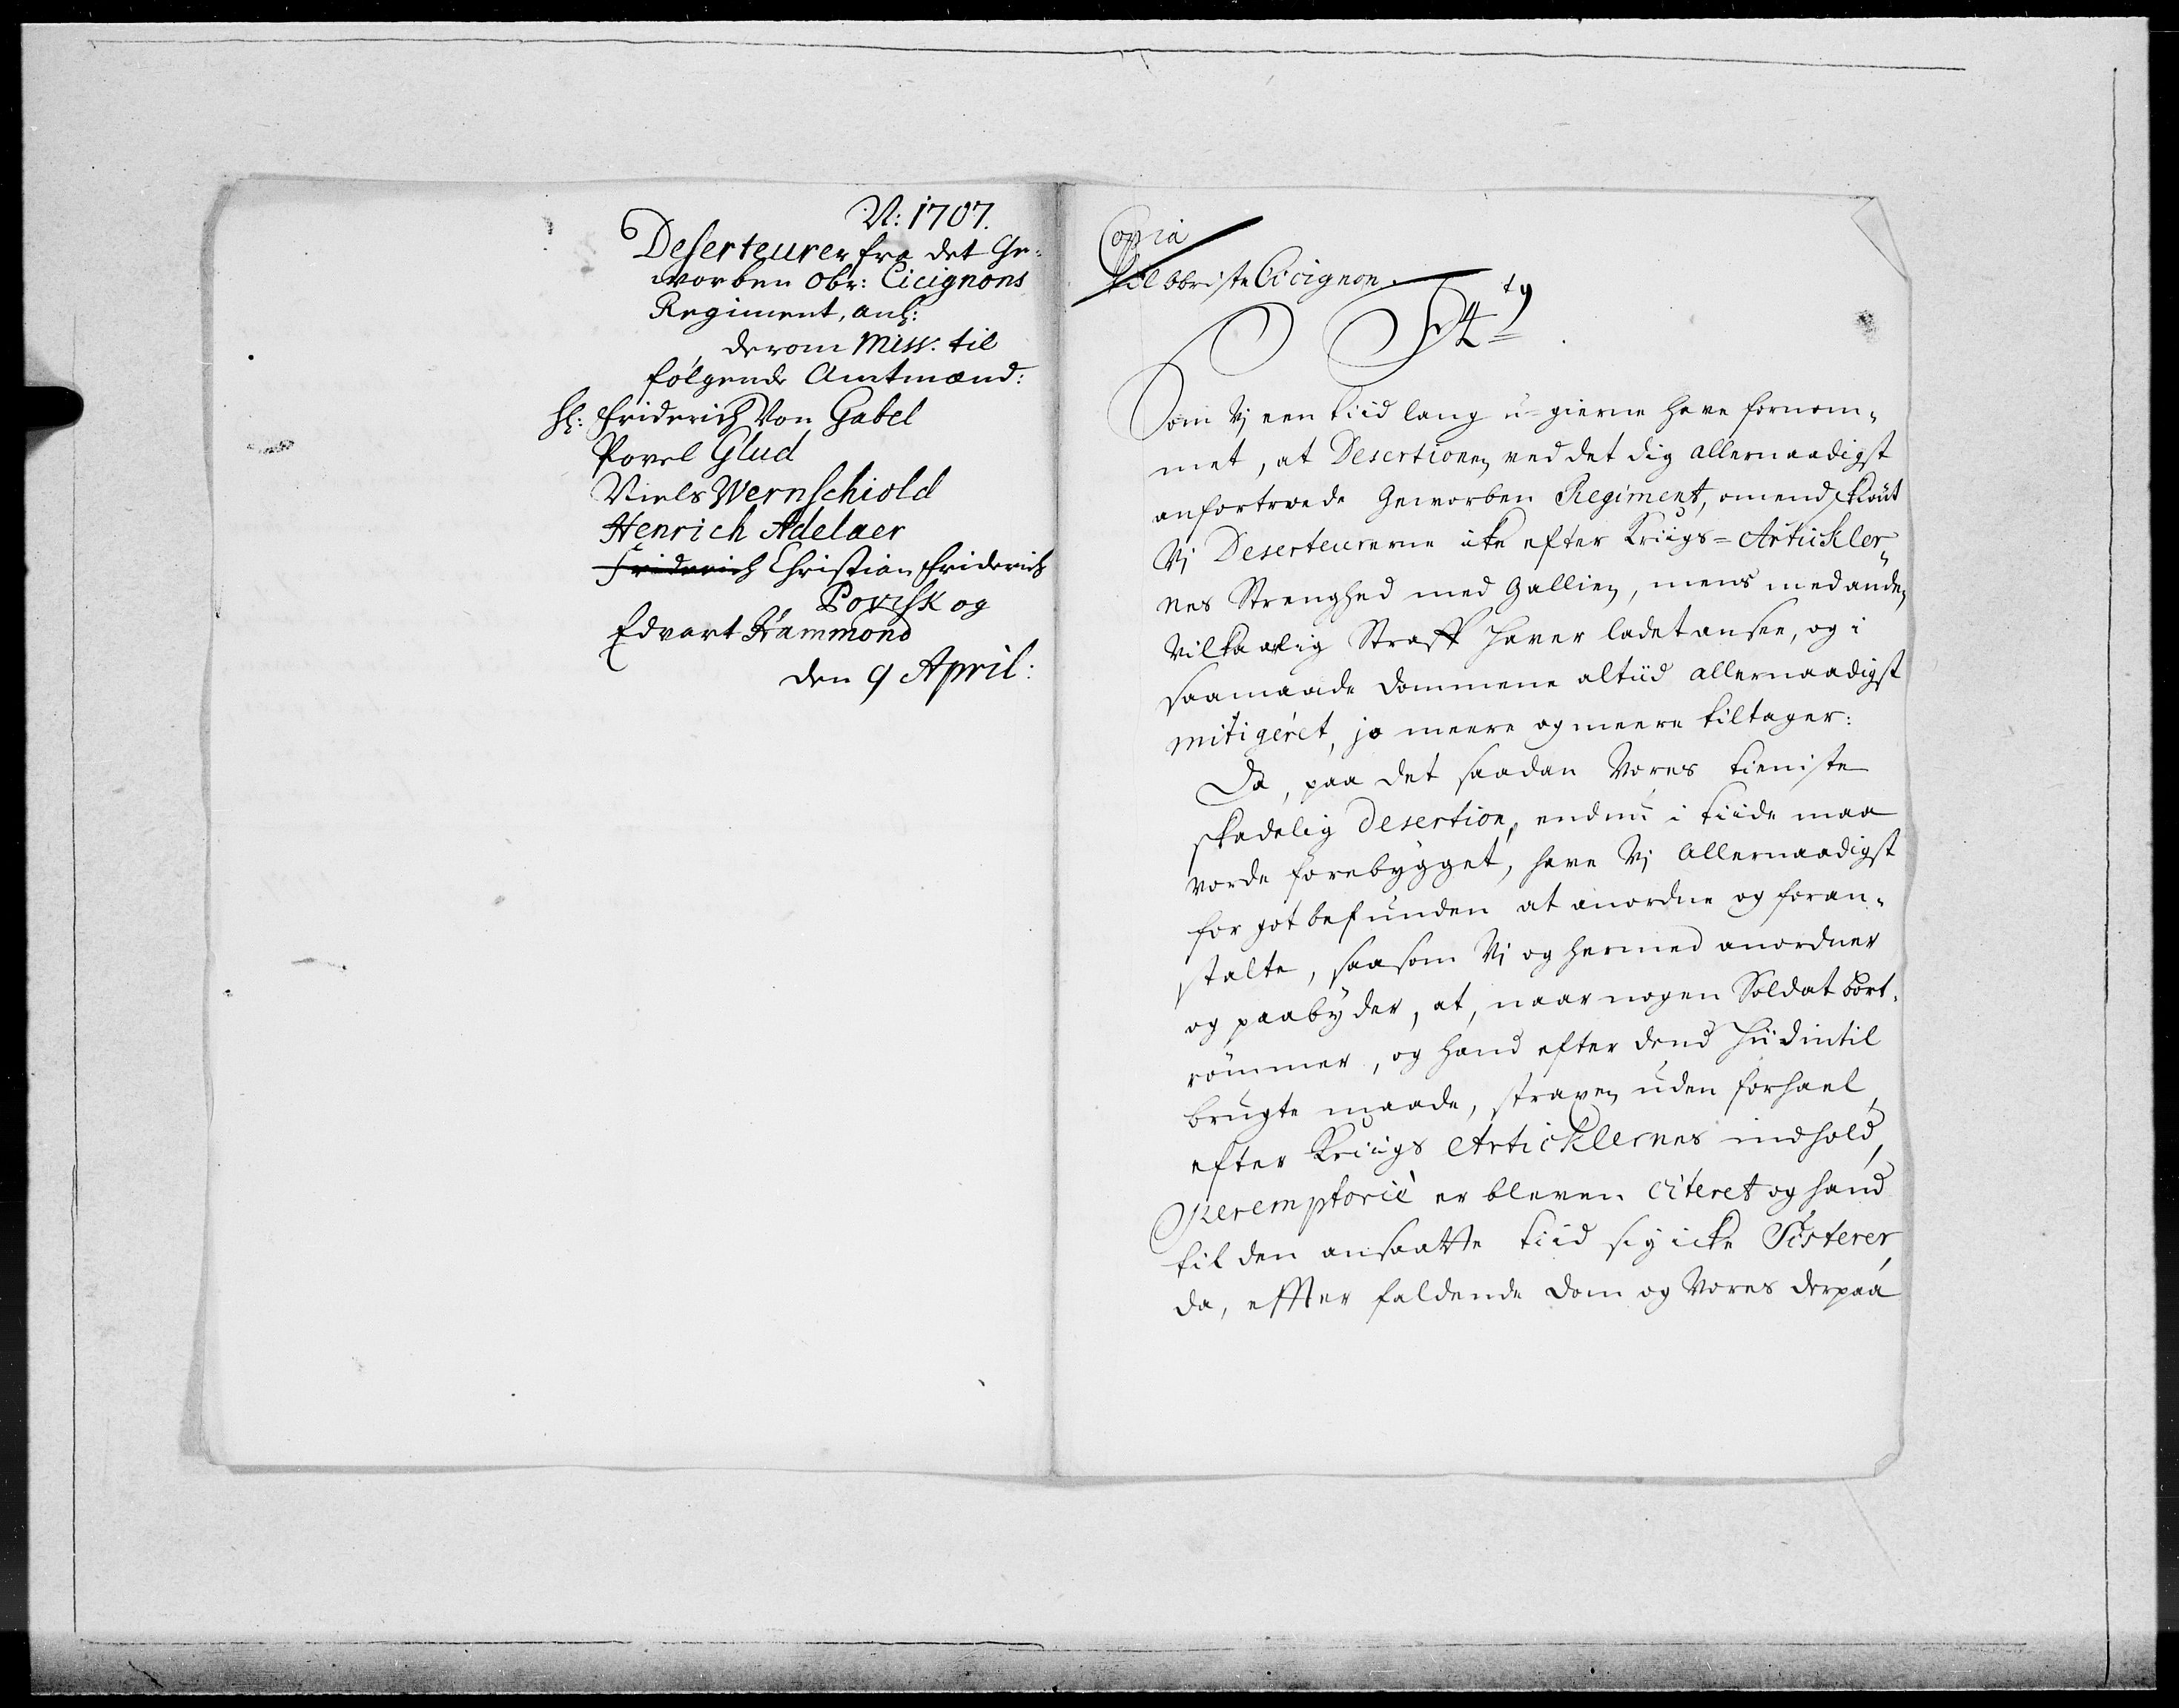 N: 1707.
Deserteurer fra det Ge-
worben Obr: Cicignons
Regiment, anl:
derom Miss. til
følgende Amtmænd:
Hl: Friderich Von Gabel
Povel Glud
Niels Wernschiold
Henrich Adelaer
Friderich Christian Friderich
Povisk og
Edvart Hammond
den 9 April:
Copia
til Obriste Cicignon.
F 4 tg
Som Vj een tiid lang u-gierne have fornom-
met, at Desertionen ved det dig allernaadigst
anfortroede Geworben Regiment, omendskiønt
Vj Deserteurerne icke efter Kriigs-Artickler-
nes Strenghed med Gallien, mens med anden
vilkaarlig Straff haver ladet ansee, og i
saamaade dommene altiid allernaadigst
mitigéret, jo meere og meere tiltager:
Da, paa det saadan Vores tieniste
skadelig Desertion, endnu i tiide maa
vorde forebygget, have Vj Allernaadigst
for got befunden at anordne og foran-
stalte, saasom Vj og hermed anordner
og paabyder, at, naar nogen Soldat bort-
rømmer, og hand efter dend hiidintil
brugte maade, straxen uden forhael,
efter Kriigs Articklernes indhold,
Peremptoriè er bleven Citeret og hand
til den ansatte tiid sig icke Sisterer,
da, effter faldende dom og Vores derpaa